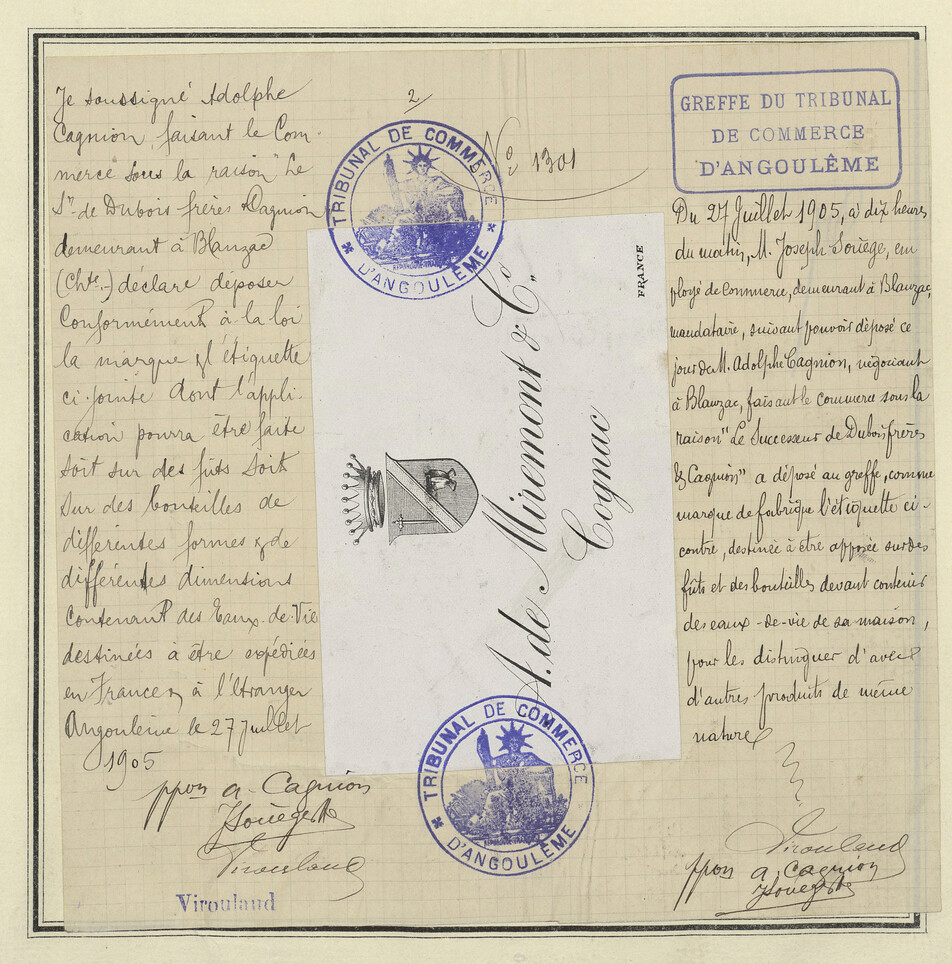 Je soussigné Adolphe
Cagnion, faisant le Com-
merce sous la raison "Le
Sr. de Dubois frères & Cagnion
demeurant à Blanzac
(Chte.-) déclare déposer
Conformément à la loi
la marque & l'étiquette
ci-jointe dont l'appli-
cation pourra être faite
soit sur des fûts soit
sur des bouteilles de
différentes formes & de
différentes dimensions
contenant des Eaux-de-Vie
destinées à être expédiées
en France & à l'étranger
Angoulême le 27 Juillet
1905
ppon a. Cagnion
JSoriège
Virouland
Virouland
2
No 1301
TRIBUNAL DE COMMERCE
* D'ANGOULÊME *
FRANCE
A. de Miremont & Co.
Cognac
TRIBUNAL DE COMMERCE
* D'ANGOULÊME *
GREFFE DU TRIBUNAL
DE COMMERCE
D'ANGOULÊME
Du 27 Juillet 1905, à dix heures
du matin, M. Joseph Soriège, em
ployé de commerce, demeurant à Blanzac,
mandataire, suivant pouvoir déposé ce
jour de M. Adolphe Cagnion, négociant
à Blanzac, faisant le commerce sous la
raison "Le Successeur de Dubois frères
& Cagnion" a déposé au greffe, comme
marque de fabrique l'étiquette ci-
contre, destinée à être apposée sur des
fûts et des bouteilles devant contenir
des eaux-de-vie de sa maison,
pour les distinguer d'avec
d'autres produits de même
nature
Virouland
ppon a. Cagnion
JSoriège